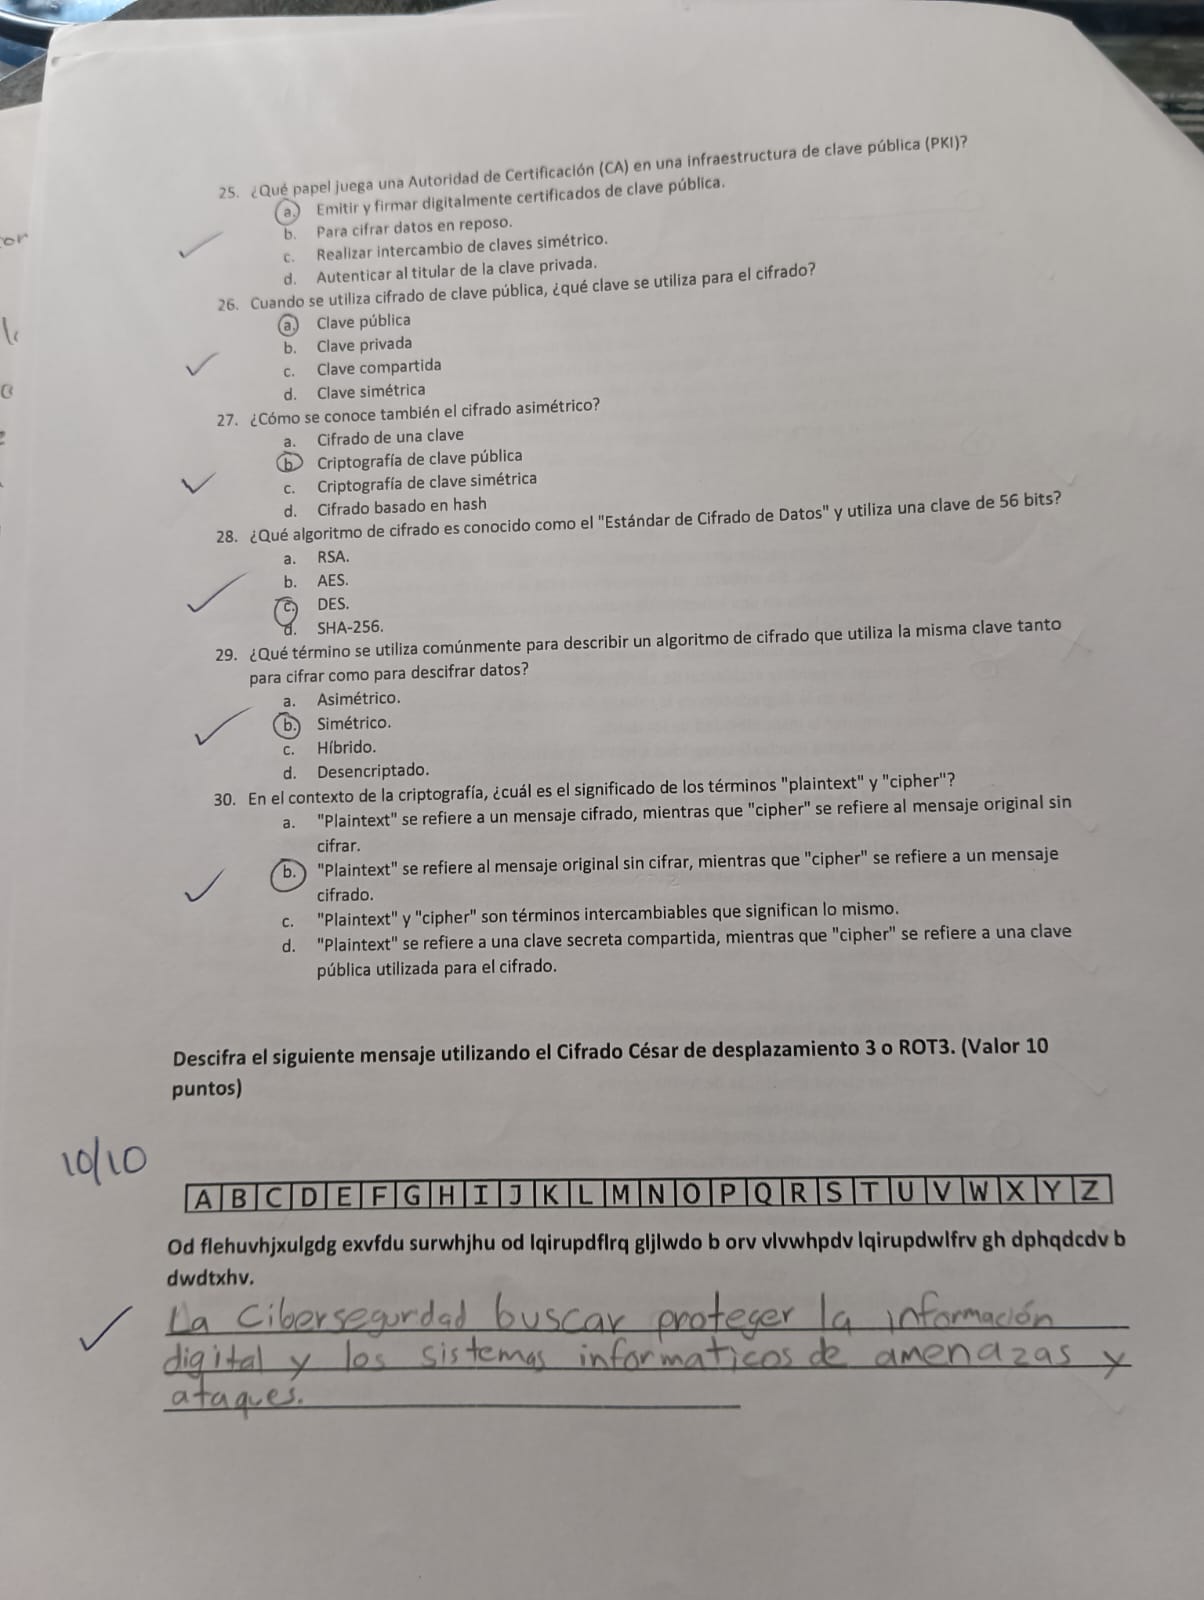 25. ¿Qué papel juega una Autoridad de Certificación (CA) en una infraestructura de clave pública (PKI)?
a. Emitir y firmar digitalmente certificados de clave pública.
b. Para cifrar datos en reposo.
c. Realizar intercambio de claves simétrico.
d. Autenticar al titular de la clave privada.
26. Cuando se utiliza cifrado de clave pública, ¿qué clave se utiliza para el cifrado?
a. Clave pública
b. Clave privada
c. Clave compartida
d. Clave simétrica
27. ¿Cómo se conoce también el cifrado asimétrico?
a. Cifrado de una clave
b. Criptografía de clave pública
c. Criptografía de clave simétrica
d. Cifrado basado en hash
28. ¿Qué algoritmo de cifrado es conocido como el "Estándar de Cifrado de Datos" y utiliza una clave de 56 bits?
a. RSA.
b. AES.
c. DES.
d. SHA-256.
29. ¿Qué término se utiliza comúnmente para describir un algoritmo de cifrado que utiliza la misma clave tanto
para cifrar como para descifrar datos?
a. Asimétrico.
b. Simétrico.
c. Híbrido.
d. Desencriptado.
30. En el contexto de la criptografía, ¿cuál es el significado de los términos "plaintext" y "cipher"?
a. "Plaintext" se refiere a un mensaje cifrado, mientras que "cipher" se refiere al mensaje original sin
cifrar.
b. "Plaintext" se refiere al mensaje original sin cifrar, mientras que "cipher" se refiere a un mensaje
cifrado.
c. "Plaintext" y "cipher" son términos intercambiables que significan lo mismo.
d. "Plaintext" se refiere a una clave secreta compartida, mientras que "cipher" se refiere a una clave
pública utilizada para el cifrado.
Descifra el siguiente mensaje utilizando el Cifrado César de desplazamiento 3 o ROT3. (Valor 10
puntos)
10/10
A B C D E F G H I J K L M N O P Q R S T U V W X Y Z
Od flehuvhjxulgdg exvfdu surwhjhu od lqirupdflrq gljlwdo b orv vlvwhpdv lqirupdwlfrv gh dphqdcdv b
dwdtxhv.
La Ciberseguridad buscar proteger la información
digital y los sistemas informaticos de amenazas y
ataques.